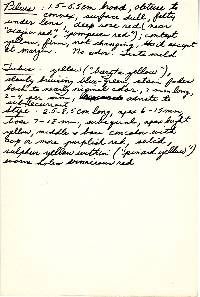 Pileus: 1.5-6.5cm broad, obtuse to
convex, surface dull, felty
under lens, deep rose red (near
"acajou red", "pompeian red"); context
yellow, firm, not changing, thick except
at margin. No odor. Taste mild
Tubes: yellow ("baryta yellow"),
slowly bruising blue-green, stain fades
back to nearly original color, 2 mm long,
2-4 per mm, adnate to
subdecurrent
Stipe: 2.5-8.5 cm long, apex 6-15mm,
base 7-18mm, subequal, apex bright
yellow, middle & base concolor with
cap or more purplish red, solid,
sulphur yellow within ("pinard yellow")
worm holes vinaceous red